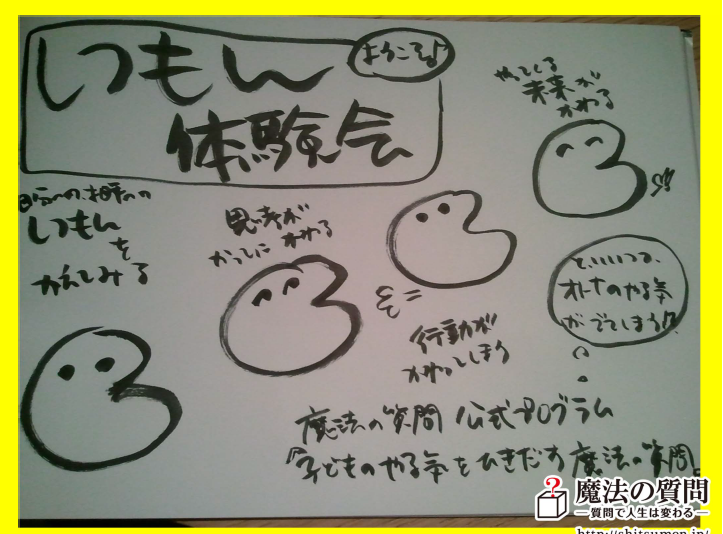 しつもん
体験会
ようこそ♪
自分への、相手への
しつもん
を
かえてみる
思考が
かってに かわる
行動が
かわってしまう
やってくる
未来が
かわる
と、いいつつ、
オトナのやる気
がでてしまう!?
魔法の質問 公式プログラム
『子どものやる気をひきだす魔法の質問』
魔法の質問
質問で人生は変わる
http://shitsumon.jp/